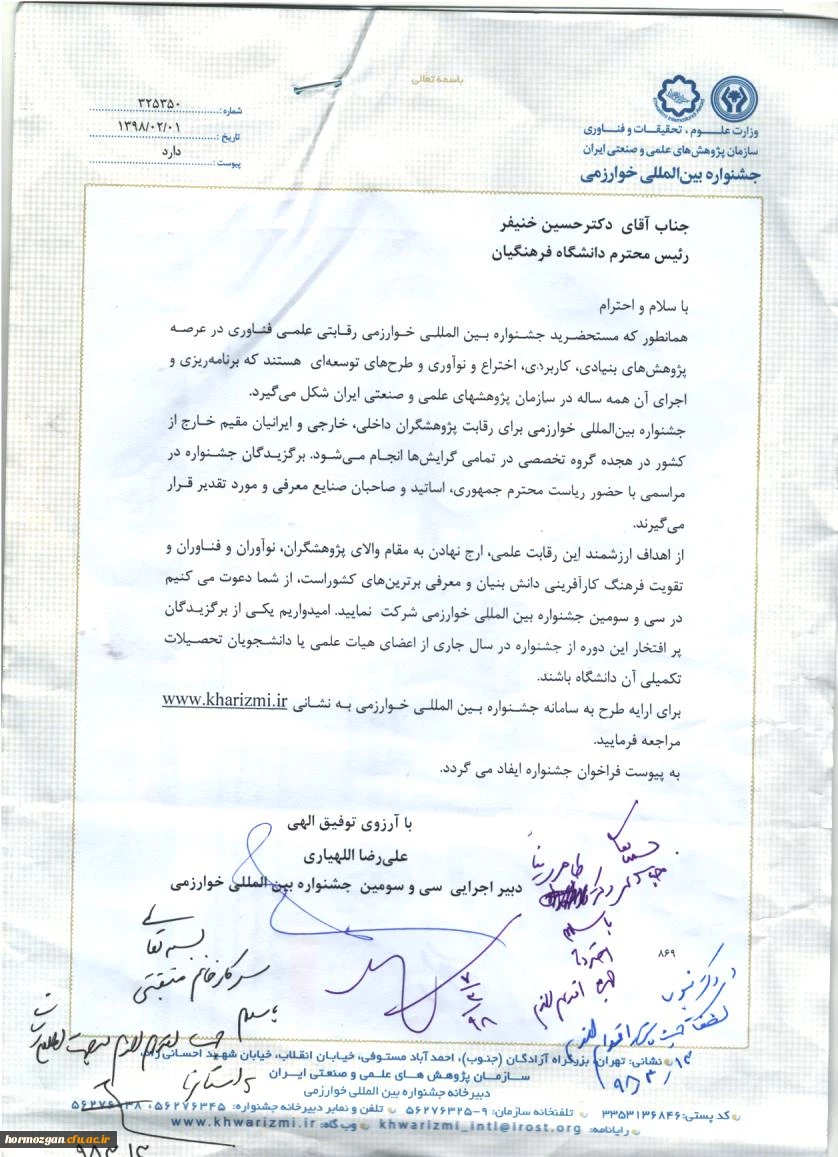 باسمه تعالی
وزارت علوم، تحقیقات و فناوری
سازمان پژوهش‌های علمی و صنعتی ایران
جشنواره بین‌المللی خوارزمی
شماره: ۳۲۵۳۵۰
تاریخ: ۱۳۹۸/۰۲/۰۱
پیوست: دارد
جناب آقای دکترحسین خنیفر
رئیس محترم دانشگاه فرهنگیان
با سلام و احترام
همانطور که مستحضرید جشنواره بین المللی خوارزمی رقابتی علمی فناوری در عرصه
پژوهش‌های بنیادی، کاربردی، اختراع و نوآوری و طرح‌های توسعه‌ای هستند که برنامه‌ریزی و
اجرای آن همه ساله در سازمان پژوهشهای علمی و صنعتی ایران شکل می‌گیرد.
جشنواره بین‌المللی خوارزمی برای رقابت پژوهشگران داخلی، خارجی و ایرانیان مقیم خارج از
کشور در هجده گروه تخصصی در تمامی گرایش‌ها انجام می‌شود. برگزیدگان جشنواره در
مراسمی با حضور ریاست محترم جمهوری، اساتید و صاحبان صنایع معرفی و مورد تقدیر قرار
می‌گیرند.
از اهداف ارزشمند این رقابت علمی، ارج نهادن به مقام والای پژوهشگران، نوآوران و فناوران و
تقویت فرهنگ کارآفرینی دانش بنیان و معرفی برترین‌های کشوراست، از شما دعوت می کنیم
در سی و سومین جشنواره بین المللی خوارزمی شرکت نمایید. امیدواریم یکی از برگزیدگان
پر افتخار این دوره از جشنواره در سال جاری از اعضای هیات علمی یا دانشجویان تحصیلات
تکمیلی آن دانشگاه باشند.
برای ارایه طرح به سامانه جشنواره بین المللی خوارزمی به نشانی www.kharizmi.ir
مراجعه فرمایید.
به پیوست فراخوان جشنواره ایفاد می گردد.
با آرزوی توفیق الهی
علی‌رضا اللهیاری
دبیر اجرایی سی و سومین جشنواره بین المللی خوارزمی
۸۶۹
بسمه تعالی
سرکار خانم
با سلام
۹۸/۲/۷
نشانی: تهران، بزرگراه آزادگان (جنوب)، احمدآباد مستوفی، خیابان انقلاب، خیابان شهید احسانی راد،
سازمان پژوهش های علمی و صنعتی ایران
دبیرخانه جشنواره بین المللی خوارزمی
کد پستی: ۳۳۵۳۱۳۶۸۴۶ تلفنخانه سازمان: ۹-۵۶۲۷۶۳۲۵ تلفن و نمابر دبیرخانه جشنواره: ۵۶۲۷۶۳۴۵،
رایانامه: khwarizmi_intl@irost.org وب گاه: www.khwarizmi.ir
hormozgan.cfu.ac.ir